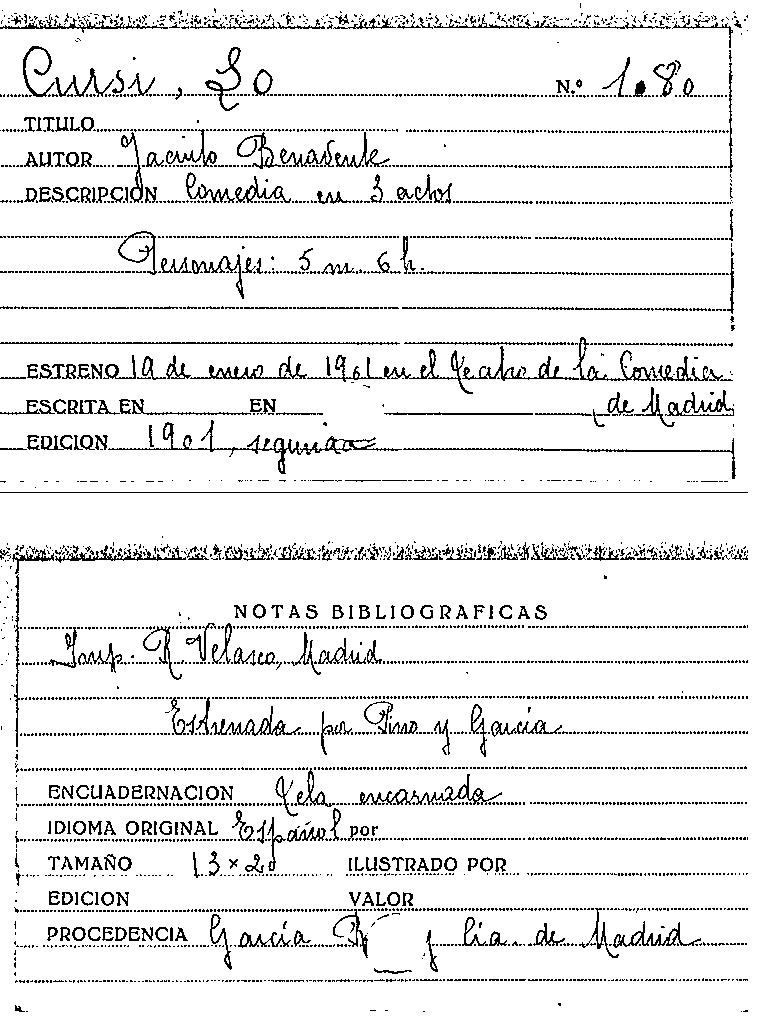 Cursi, Lo N.º 1.80
TITULO
AUTOR Jacinto Benavente
DESCRIPCION Comedia en 3 actos
Personajes: 5 m. 6 h.
ESTRENO 19 de enero de 1901 en el Teatro de la Comedia
ESCRITA EN EN de Madrid
EDICION 1901, segunda
NOTAS BIBLIOGRAFICAS
Imp. R Velasco, Madrid
Estrenada por Pino y García
ENCUADERNACION Tela encarnada
IDIOMA ORIGINAL Español por
TAMAÑO 13 x 20 ILUSTRADO POR
EDICION VALOR
PROCEDENCIA García y Cía. de Madrid